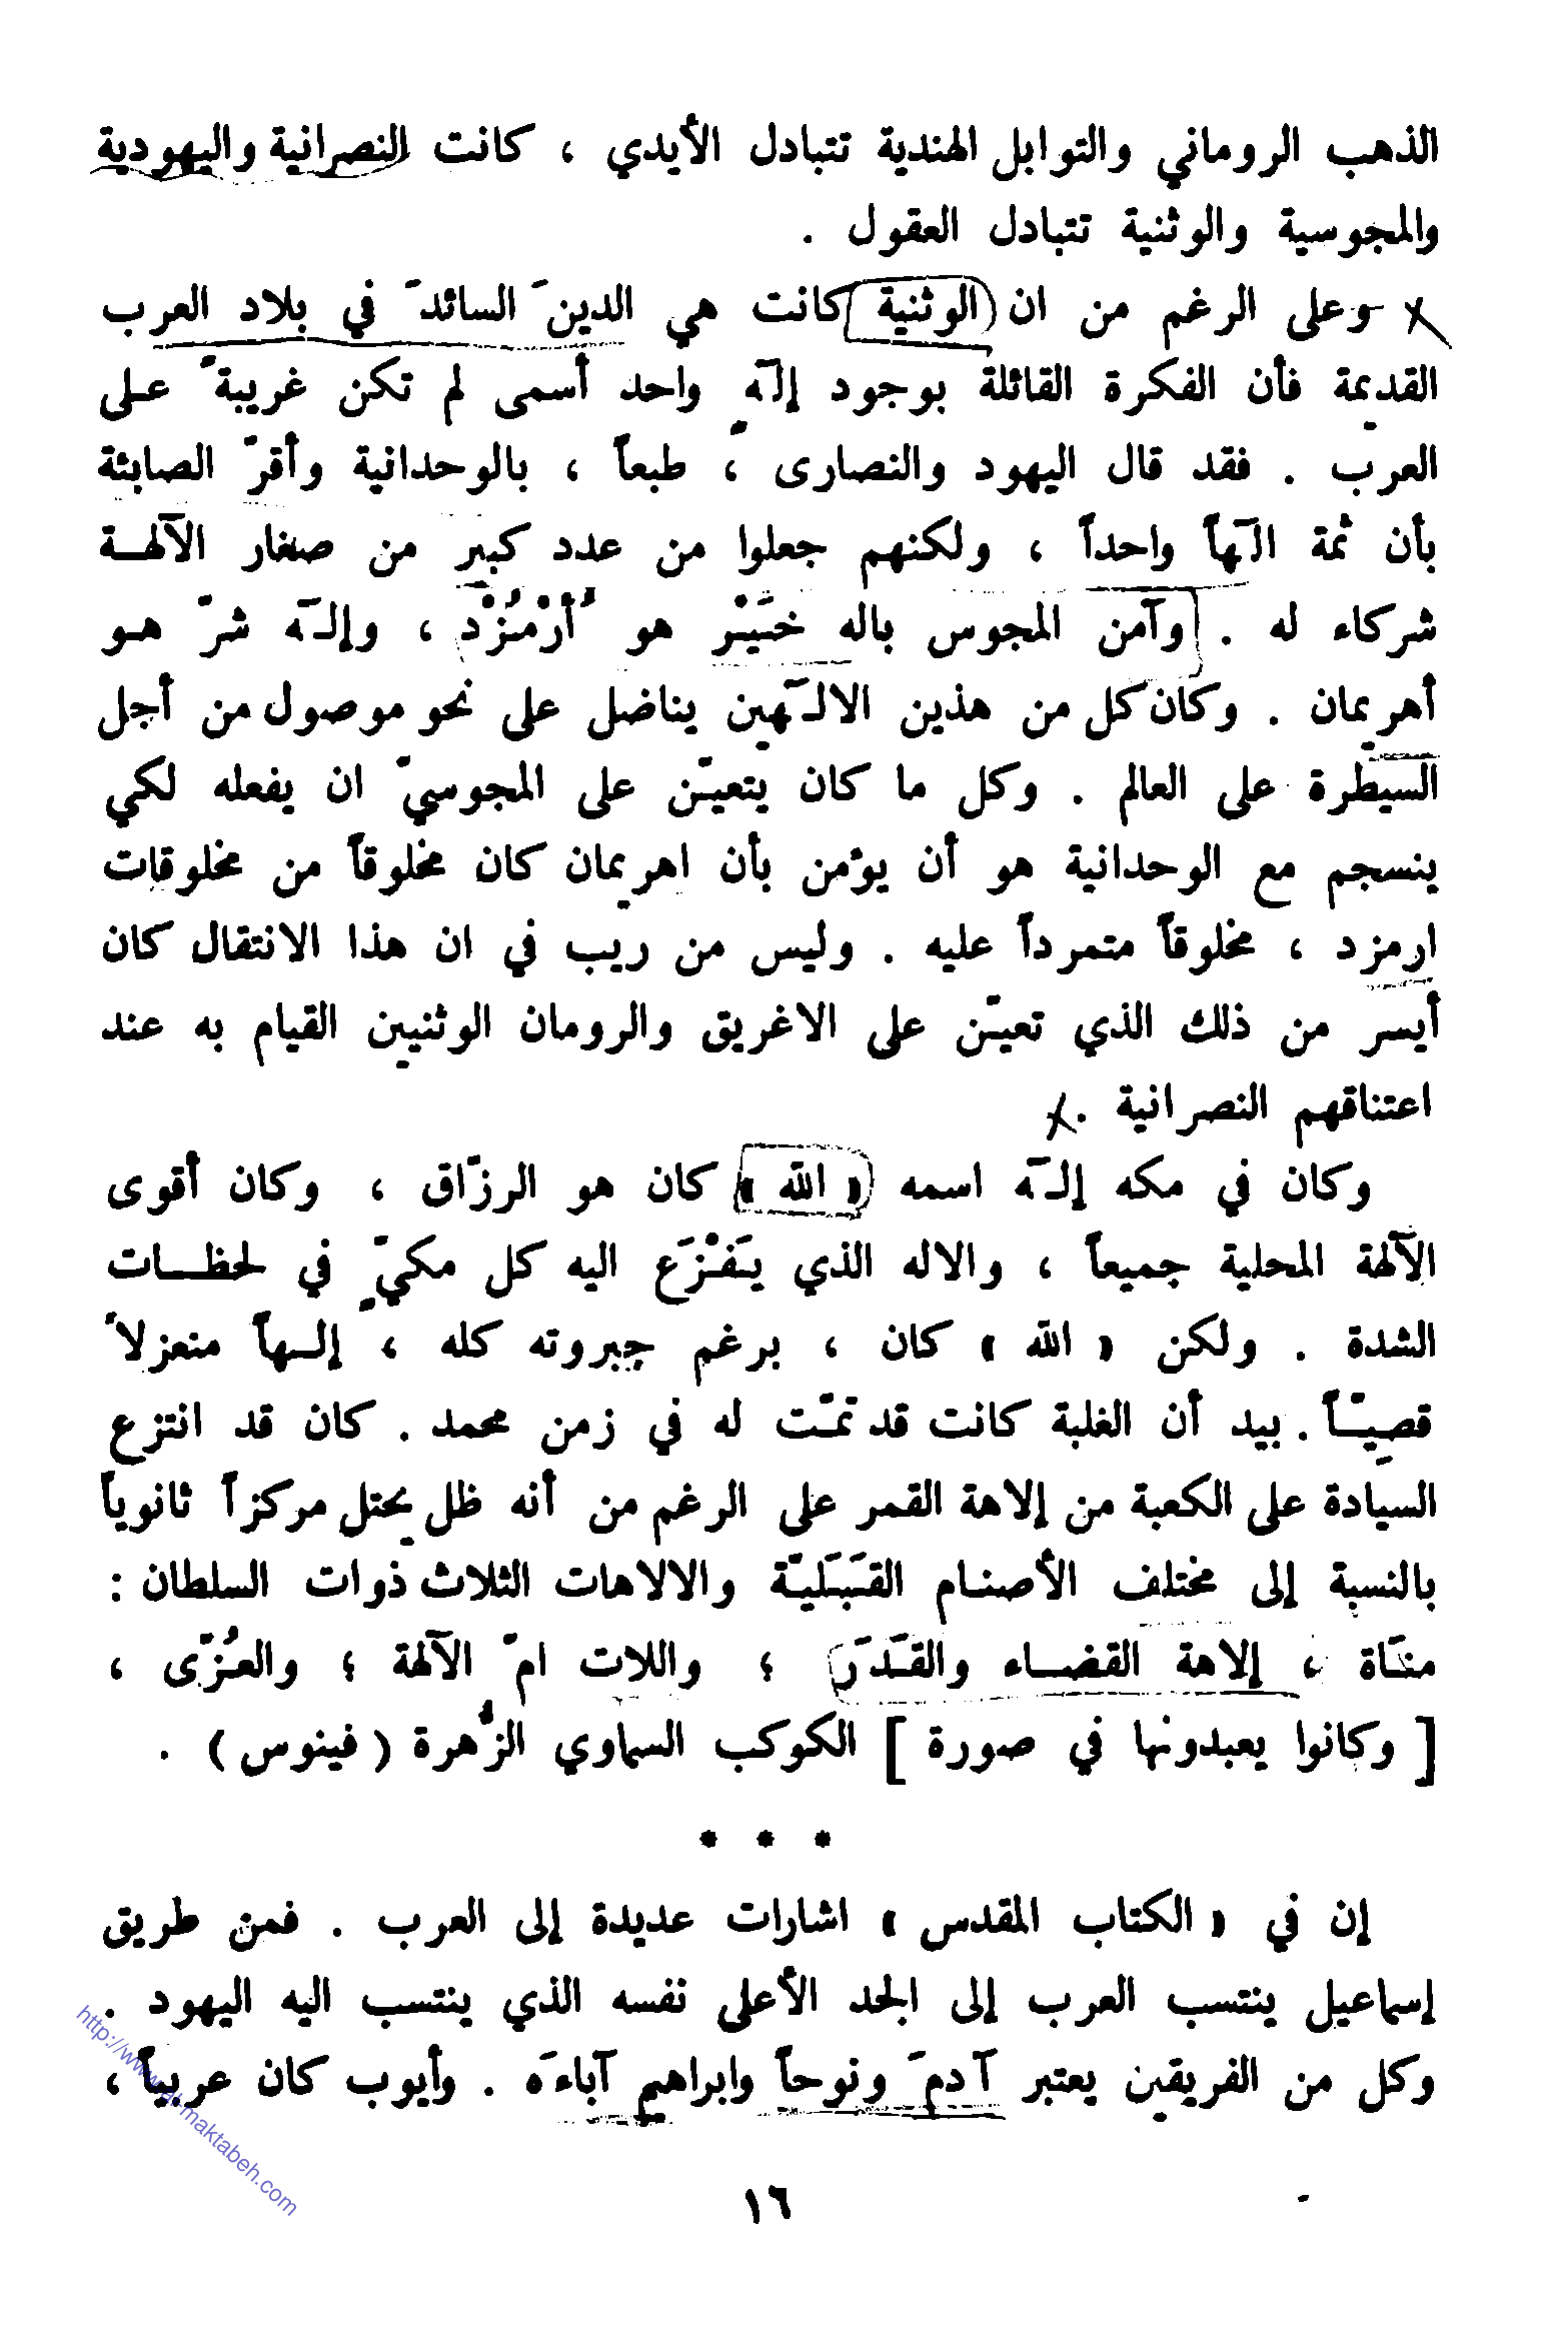 الذهب الروماني والتوابل الهندية تتبادل الأيدي ، كانت النصرانية واليهودية
والمجوسية والوثنية تتبادل العقول .
وعلى الرغم من ان الوثنية كانت هي الدينَ السائدَ في بلاد العرب
القديمة فأن الفكرة القائلة بوجود إلـٰهٍ واحد أسمى لم تكن غريبةً عـلى
العرب . فقد قال اليهود والنصارى ، طبعاً ، بالوحدانية وأقرّ الصابئة
بأن ثمة الـٰهاً واحداً ، ولكنهم جعلوا من عدد كبير من صغار الآلهـة
شركاء له . وآمن المجوس باله خَيْر هو أُرْمُزْد ، وإلـٰه شرّ هـو
أهريمان . وكان كل من هذين الالـٰهين يناضل على نحو موصول من أجل
السيطرة على العالم . وكل ما كان يتعيّن على المجوسيّ ان يفعله لكي
ينسجم مع الوحدانية هو أن يؤمن بأن اهريمان كان مخلوقاً من مخلوقات
ارمزد ، مخلوقاً متمرداً عليه . وليس من ريب في ان هذا الانتقال كان
أيسر من ذلك الذي تعيّن على الاغريق والرومان الوثنيين القيام به عند
اعتناقهم النصرانية .
وكان في مكه إلـٰه اسمه « الله » كان هو الرزّاق ، وكان أقوى
الآلهة المحلية جميعاً ، والاله الذي يَفْزَع اليه كل مكيّ في لحظـــات
الشدة . ولكن « الله » كان ، برغم جبروته كله ، إلـهاً منعزلاً
قصيّـاً . بيد أن الغلبة كانت قد تمّت له في زمن محمد . كان قد انتزع
السيادة على الكعبة من إلاهة القمر على الرغم من أنه ظل يحتل مركزاً ثانوياً
بالنسبة إلى مختلف الأصنـام القَبَليّة والالاهات الثلاث ذوات السلطان :
منَاة ، إلاهة القضـــاء والقَدَر ؛ واللات امّ الآلهة ؛ والعُزّى ،
[ وكانوا يعبدونها في صورة ] الكوكب السماوي الزُّهرة ( فينوس ) .
* * *
إن في « الكتاب المقدس » اشارات عديدة إلى العرب . فمن طريق
إسماعيل ينتسب العرب إلى الجد الأعلى نفسه الذي ينتسب اليه اليهود .
وكل من الفريقين يعتبر آدمَ ونوحاً وابراهيم آباءَه . وأيوب كان عربياً ،
١٦